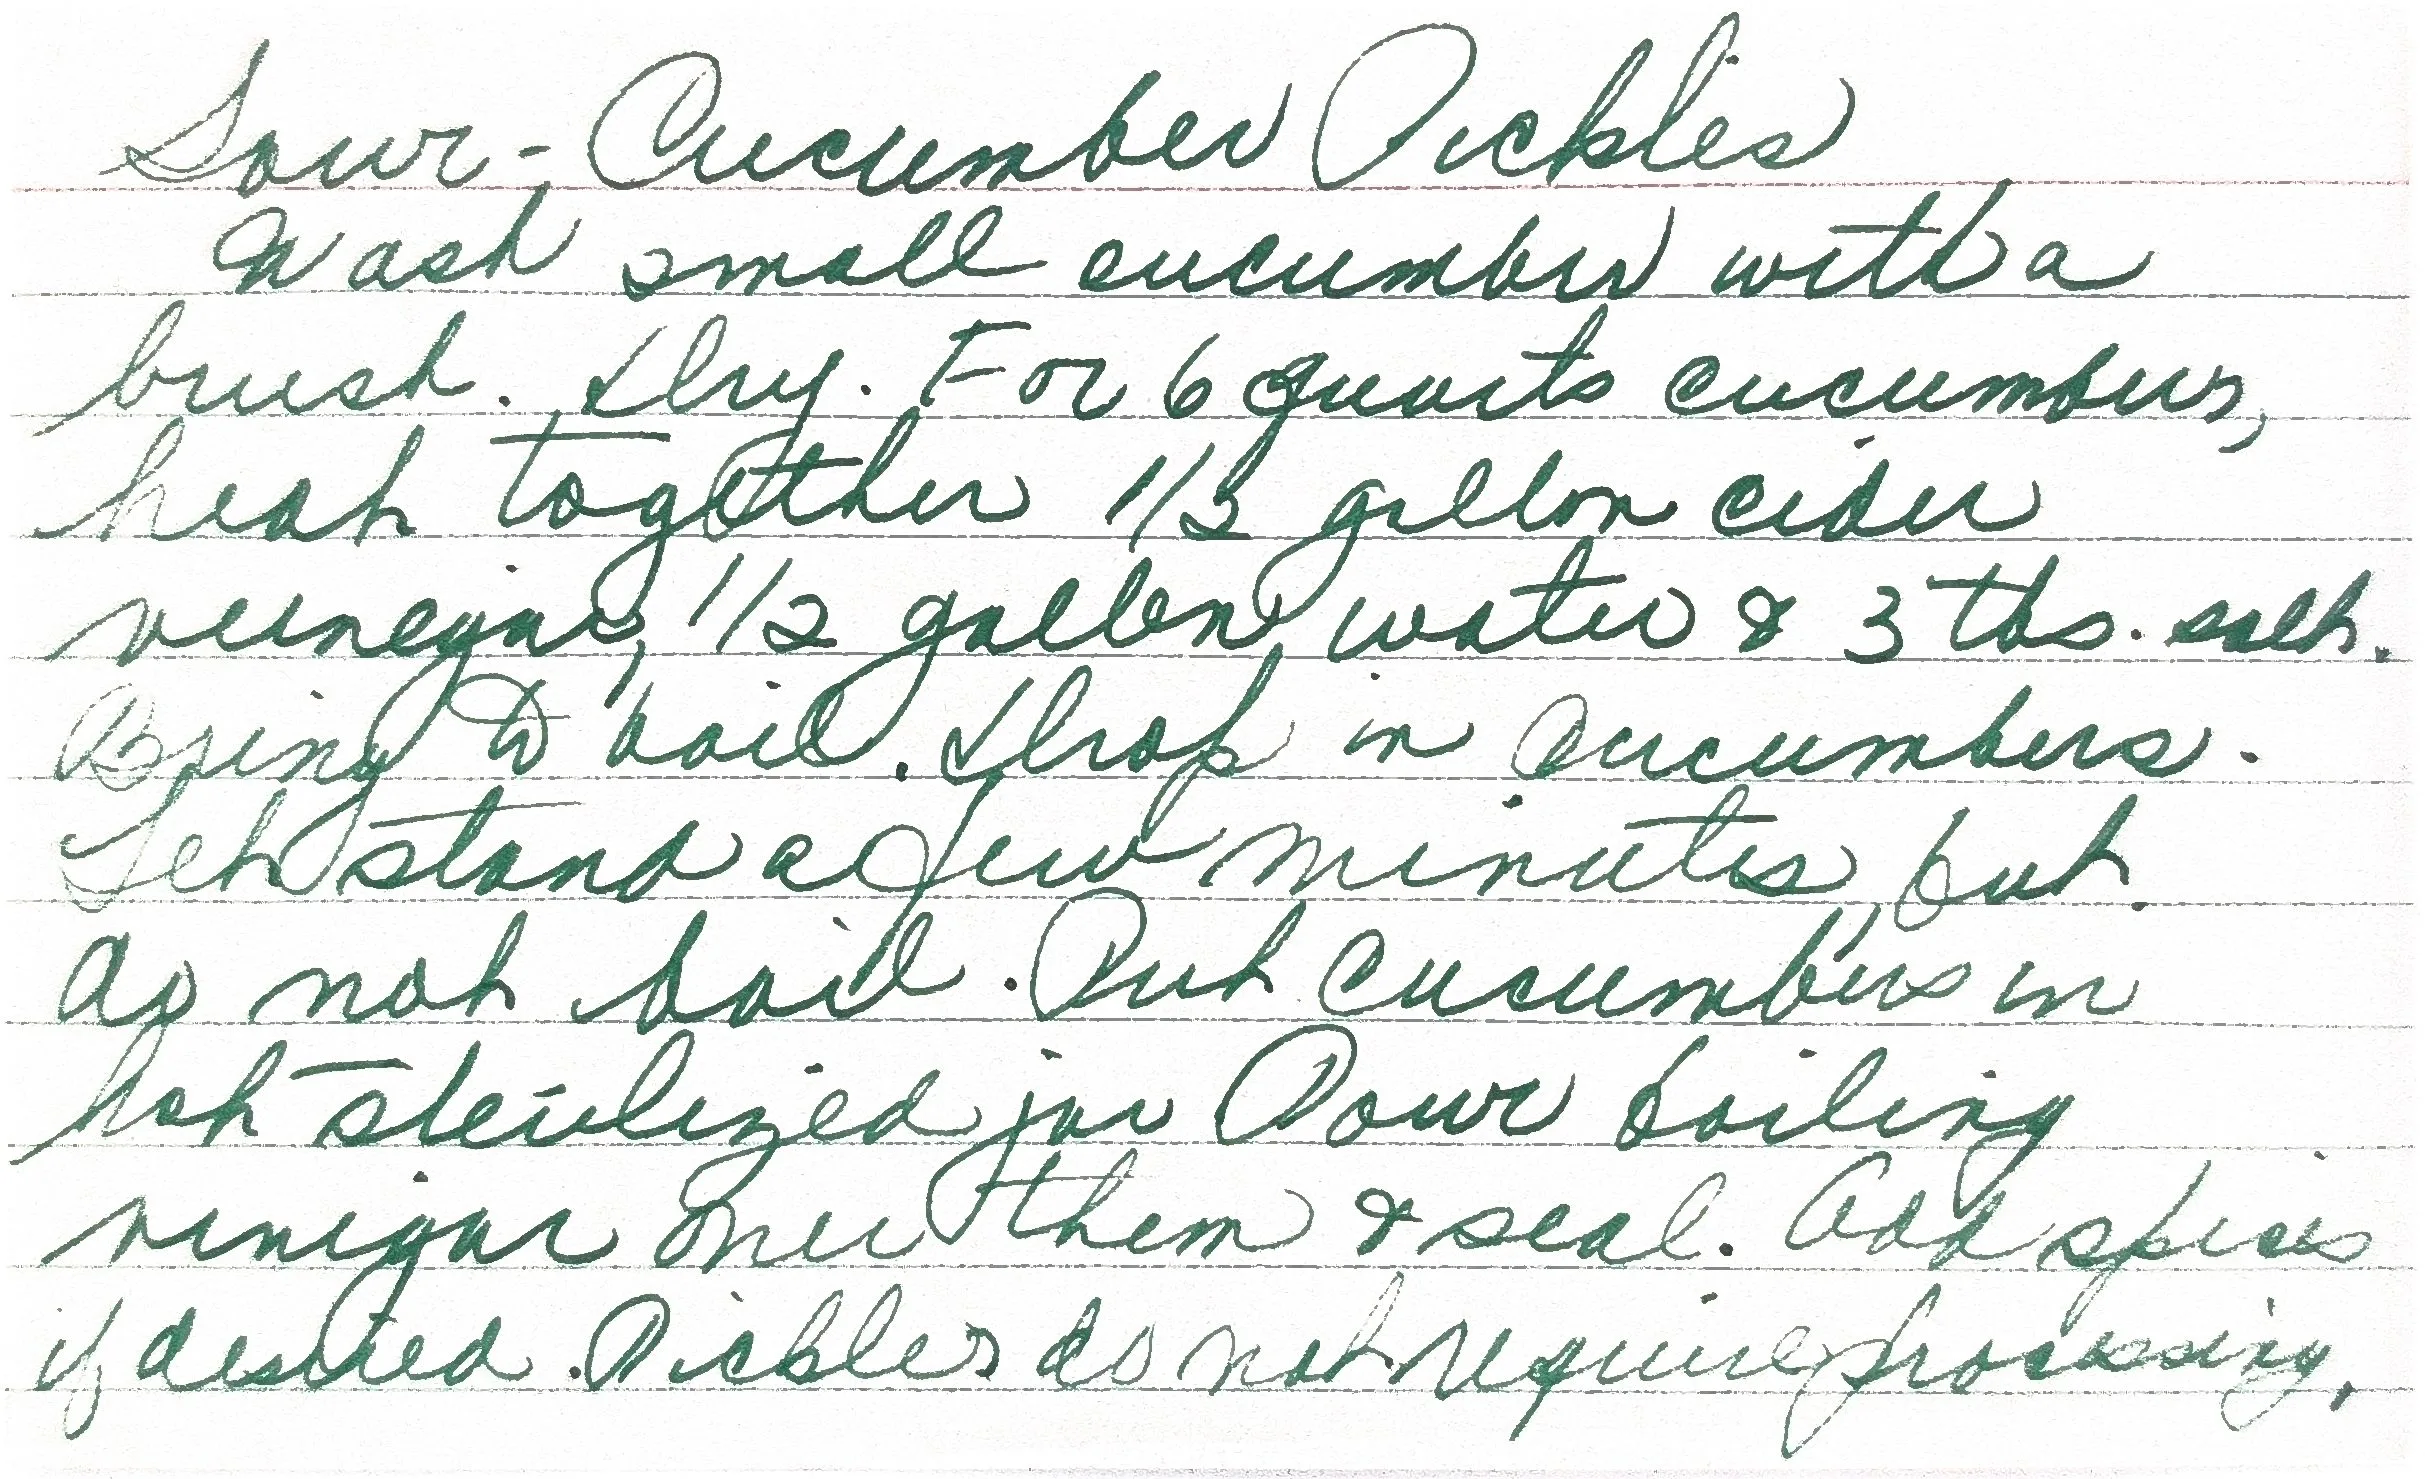 Sour - Cucumber Pickles
Wash small cucumber with a
brush. Dry. For 6 quarts cucumbers,
heat together 1/2 gallon cider
veinegar, 1/2 gallon water & 3 tbs. salt.
Bring to boil. Drop in Cucumbers.
Let stand a few minutes but
do not boil. Put cucumbers in
hot sterilized jar Pour boiling
vinigar over them & seal. Add spices
if desired. Pickles do not require processing.